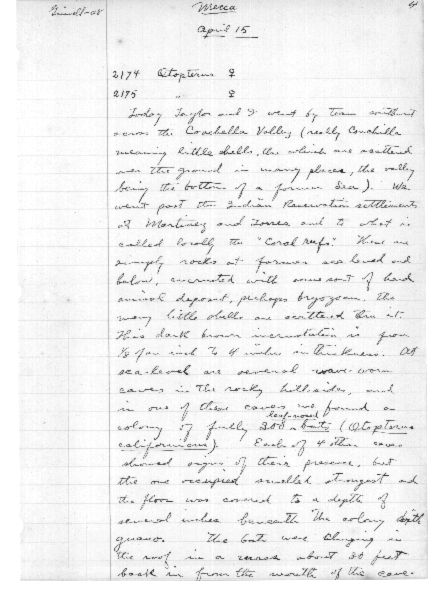 Grinnell-08
Mecca
April 15
2174 Otopterus ♀
2175 " ♀
Today Taylor and I went by team southwest
across the Coachella Valley (really Conchilla
meaning little shells, the which are scattered
over the ground in many places, the valley
being the bottom of a former sea). We
went past the Indian Reservation settlements
of Martinez and Torres and to what is
called locally the "Coral reefs". These are
simply rocks at former sea level and
below, encrusted with some sort of hard
animal deposit, perhaps bryozoan. The
many little shells are scattered thru it.
This dark brown incrustation is from
½ of an inch to 4 inches in thickness. At
sea-level are several wave-worn
caves in the rocky hillsides, and
in one of these caves we found a
colony of fully 200 leaf-nosed bats (Otopterus
californicus). Each of 4 other caves
showed signs of their presence, but
the one occupied smelled strongest and
the floor was covered to a depth of
several inches beneath the colony with
guano. The bats were clinging in
the roof in a mass about 30 feet
back in from the mouth of the cave.